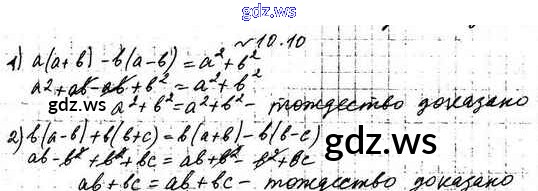 gdz.ws
№10.10
1) a(a+b)-b(a-b)=a²+b²
a2+ab-ab+b²=a²+b²
a²+b²=a²+b² - тождество доказано
gdz.ws
2) b(a-b)+b(b+c)=b(a+b)-b(b-c)
ab-b²+b²+bc=ab+b²-b²+bc
ab+bc=ab+bc - тождество доказано
gdz.ws
gdz.ws